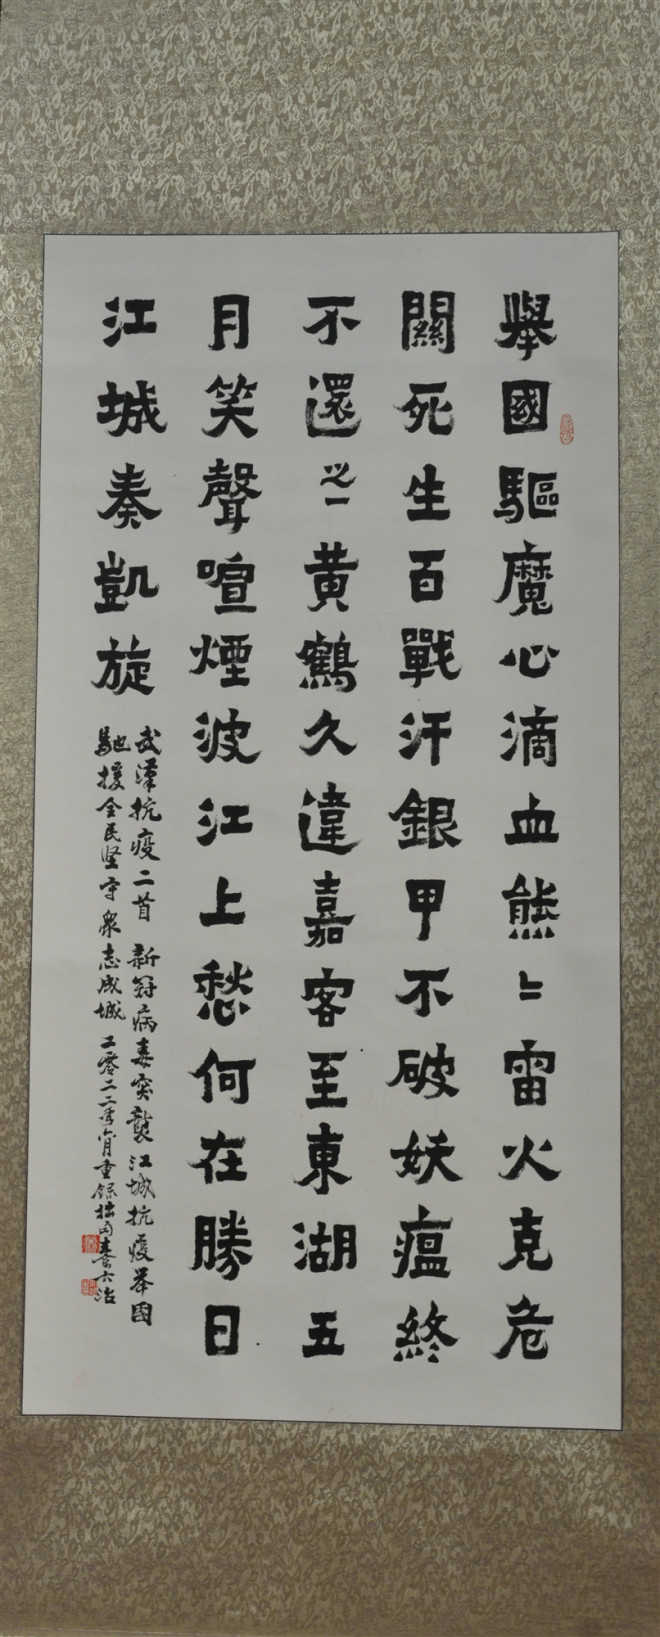 舉國驅魔心滴血熊⺀雷火克危
關死生百戰汗銀甲不破妖瘟終
不還之一黄鶴久違嘉客至東湖五
月笑聲喧煙波江上愁何在勝日
江城奏凱旋
武漢抗疫二首 新冠病毒突襲江城抗疫舉國
馳援全民坚守衆志成城 二零二二年育重錄拙句